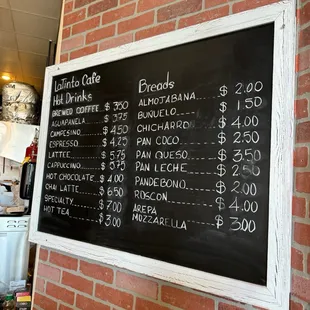 LaTinto Cafe
Hot Drinks
BREWED COFFEE $ 3.50
AGUAPANELA $ 3.75
CAMPESINO $ 4.50
ESPRESSO $ 4.25
LATTEE $ 5.75
CAPPUCCINO $ 5.75
HOT CHOCOLATE $ 4.00
CHAI LATTE $ 6.50
SPECIALTY $ 7.00
HOT TEA $ 3.00
Breads
ALMOJABANA $ 2.00
BUÑUELO $ 1.50
CHICHARRO $ 4.00
PAN COCO $ 2.50
PAN QUESO $ 3.50
PAN LECHE $ 2.50
PANDEBONO $ 2.00
ROSCON $ 4.00
AREPA
MOZZARELLA $ 3.00